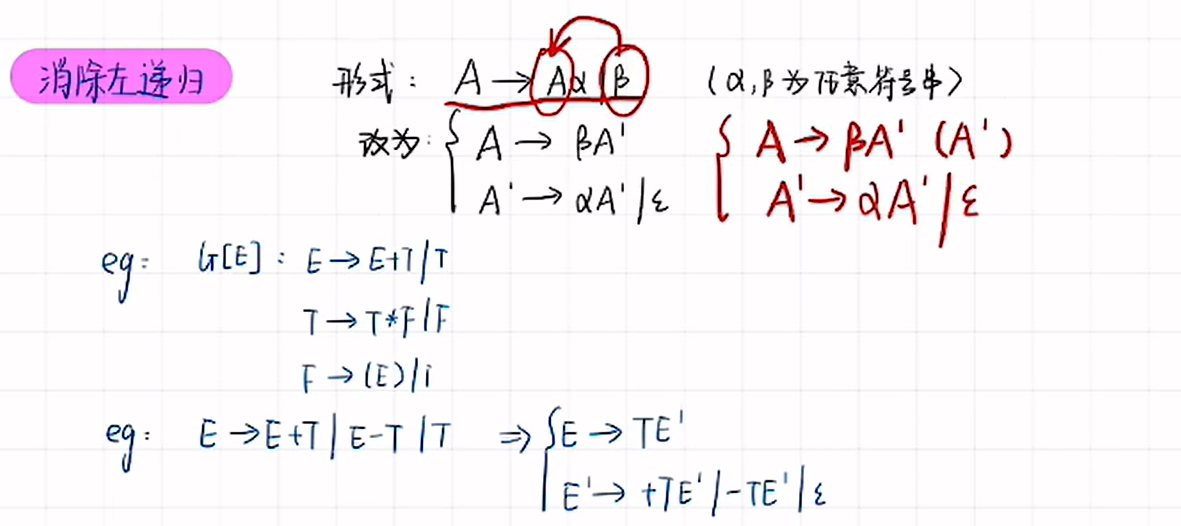 消除左递归
形式： A → Aα|β （α,β为任意符号串）
改为： { A → βA'
A' → αA'|ε
{ A → βA' (A')
A' → αA'|ε
eg: G[E]: E → E+T|T
T → T*F|F
F → (E)|i
eg: E → E+T|E-T|T ⇒ { E → TE'
E' → +TE'|-TE'|ε